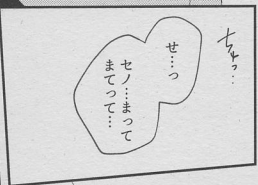 ちゅっ…
せ…っ
セノ…まって
まてって…